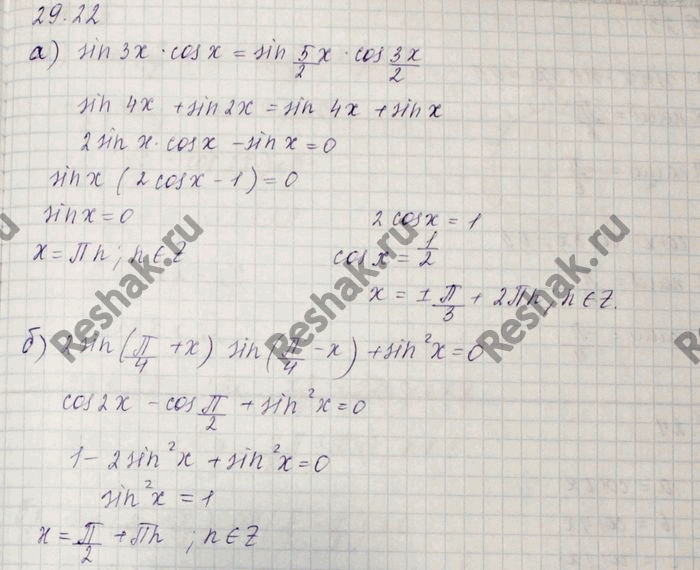 29.22
а) sin 3x · cos x = sin 5/2 x · cos 3x/2
sin 4x + sin 2x = sin 4x + sin x
2 sin x · cos x - sin x = 0
sin x (2 cos x - 1) = 0
sin x = 0        2 cos x = 1
x = Пn ; n ∈ Z        cos x = 1/2
x = ± П/3 + 2Пn, n ∈ Z.
б) 2 sin (П/4 + x) sin (П/4 - x) + sin²x = 0
cos 2x - cos П/2 + sin²x = 0
1 - 2 sin²x + sin²x = 0
sin²x = 1
x = П/2 + Пn ; n ∈ Z
Reshak.ru
Reshak.ru
Reshak.ru